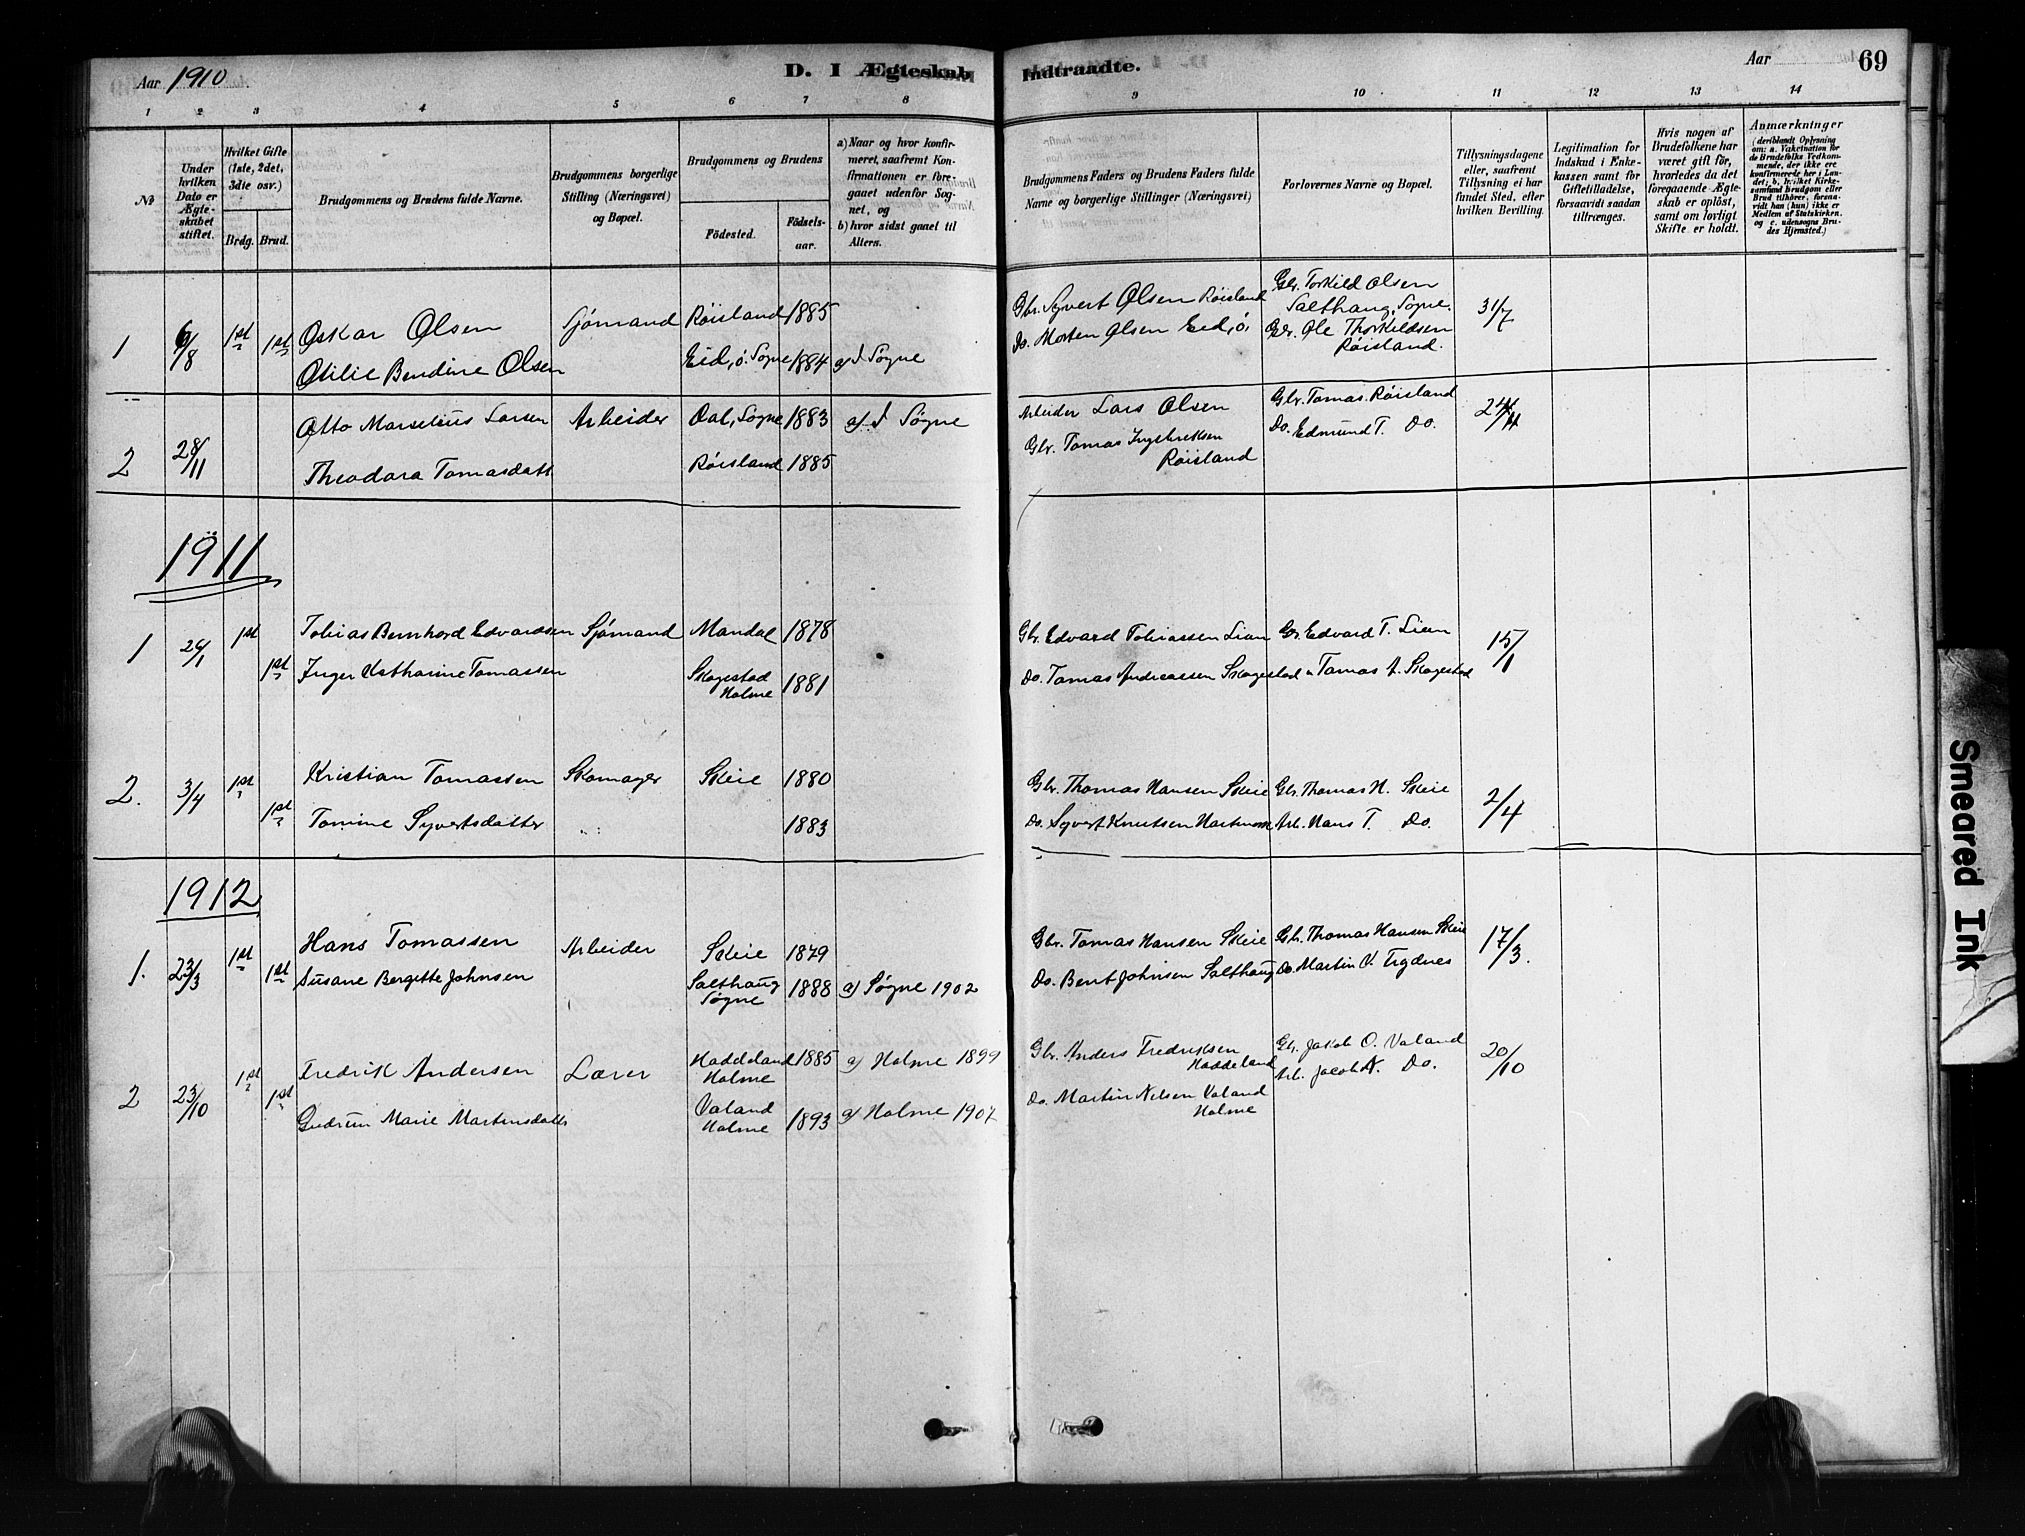 Aar 1910
D. I Ægteskab Indtraadte.
Aar
69
1 2 3 4 5 6 7 8 9 10 11 12 13 14
No
Under hvilken Dato er Ægteskabet stiftet.
Hvilket Gifte (1ste, 2det, 3die osv.)
Brdg. Brud.
Brudgommens og Brudens fulde Navne.
Brudgommens borgerlige Stilling (Næringsvei) og Bopæl.
Brudgommens og Brudens
Födested. Födsels-aar.
a) Naar og hvor konfirmeret, saafremt Konfirmationen er foregaaet udenfor Sognet, og
b) hvor sidst gaaet til Alters.
Brudgommens Faders og Brudens Faders fulde Navne og borgerlige Stillinger (Næringsvei)
Forlovernes Navne og Bopæl.
Tillysningsdagene eller, saafremt Tillysning ei har fundet Sted, efter hvilken Bevilling.
Legitimation for Indskud i Enkekassen samt for Giftetilladelse, forsaavidt saadan tiltrænges.
Hvis nogen af Brudefolkene har været gift för, hvorledes da det foregaaende Ægteskab er oplöst, samt om lovligt Skifte er holdt.
Anmærkninger
(deriblandt Oplysning om: a. Vakcination for de Brudefolks Vedkommende, der ikke ere konfirmerede her i Landet; b. hvilket Kirkesamfund Brudgom eller Brud tilhörer, forsaavidt han (hun) ikke er Medlem af Statskirken, og c. udensogns Brudes Hjemsted.)
1 6/8 1st 1st Oskar Olsen Sjømand Røisland 1885 Gbr. Syvert Olsen Røisland Gbr. Torkild Olsen Salthaug, Søgne. 31/7
Otilie Bendine Olsen Eid, ö. Søgne 1884 a) I Søgne Do. Morten Olsen Eid, ö. Gbr. Ole Thorkildsen Røisland.
2 28/11 Otto Marselius Larsen Arbeider Dal, Søgne 1883 a) I Søgne Arbeider Lars Olsen Gbr. Tomas Røisland 24/11
Theodora Tomasdatt Røisland 1885 Gbr. Tomas Ingebriktsen Røisland Do. Edmund T. Do.
1911
1 26/1 1st Tobias Bernhard Edvardsen Sjømand Mandal 1878 Gbr. Edvard Tobiassen Lian Gbr. Edvard T. Lian 15/1
1st Inger Katharine Tomassen Skogestad Holme 1881 Do. Tomas Andreassen Skogestad " Tomas A. Skogestad
2. 3/4 1st Kristian Tomassen Skomager Skeie 1880 Gbr. Thomas Hansen Skeie Gbr. Thomas H. Skeie 2/4
1st Tomine Syvertsdatter 1883 Do. Syvert Knutsen Arb. Hans T. Do.
1912
1. 23/3 1st Hans Tomassen Arbeider Skeie 1879 Gbr. Tomas Hansen Skeie Gbr. Thomas Hansen Skeie 17/3.
1st Susane Bergitte Johnsen Salthaug Søgne 1888 a) Søgne 1902 Do. Bent Johnsen Salthaug Do. Martin V.
2 23/10 1st Fredrik Andersen Lærer Haddeland Holme 1885 a) Holme 1899 Gbr. Anders Fredriksen Haddeland Gbr. Jakob O. Valand 20/10
1st Gudrun Marie Martinsdatter Valand Holme 1893 a) Holme 1907 Do. Martin Nilsen Valand Holme Arb. Jacob A. Do.
Smeared Ink